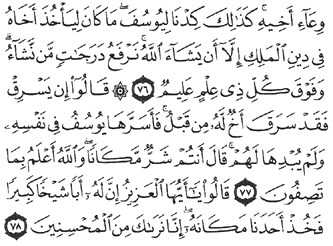 وِعَآءِ أَخِيهِ ۚ كَذَٰلِكَ كِدْنَا لِيُوسُفَ ۖ مَا كَانَ لِيَأْخُذَ أَخَاهُ
فِى دِينِ ٱلْمَلِكِ إِلَّآ أَن يَشَآءَ ٱللَّهُ ۚ نَرْفَعُ دَرَجَٰتٍ مَّن نَّشَآءُ ۗ
وَفَوْقَ كُلِّ ذِى عِلْمٍ عَلِيمٌ ٧٦ ۞ قَالُوٓا۟ إِن يَسْرِقْ
فَقَدْ سَرَقَ أَخٌ لَّهُۥ مِن قَبْلُ ۚ فَأَسَرَّهَا يُوسُفُ فِى نَفْسِهِۦ
وَلَمْ يُبْدِهَا لَهُمْ ۚ قَالَ أَنتُمْ شَرٌّ مَّكَانًا ۖ وَٱللَّهُ أَعْلَمُ بِمَا
تَصِفُونَ ٧٧ قَالُوا۟ يَٰٓأَيُّهَا ٱلْعَزِيزُ إِنَّ لَهُۥٓ أَبًا شَيْخًا كَبِيرًا
فَخُذْ أَحَدَنَا مَكَانَهُۥٓ ۖ إِنَّا نَرَىٰكَ مِنَ ٱلْمُحْسِنِينَ ٧٨